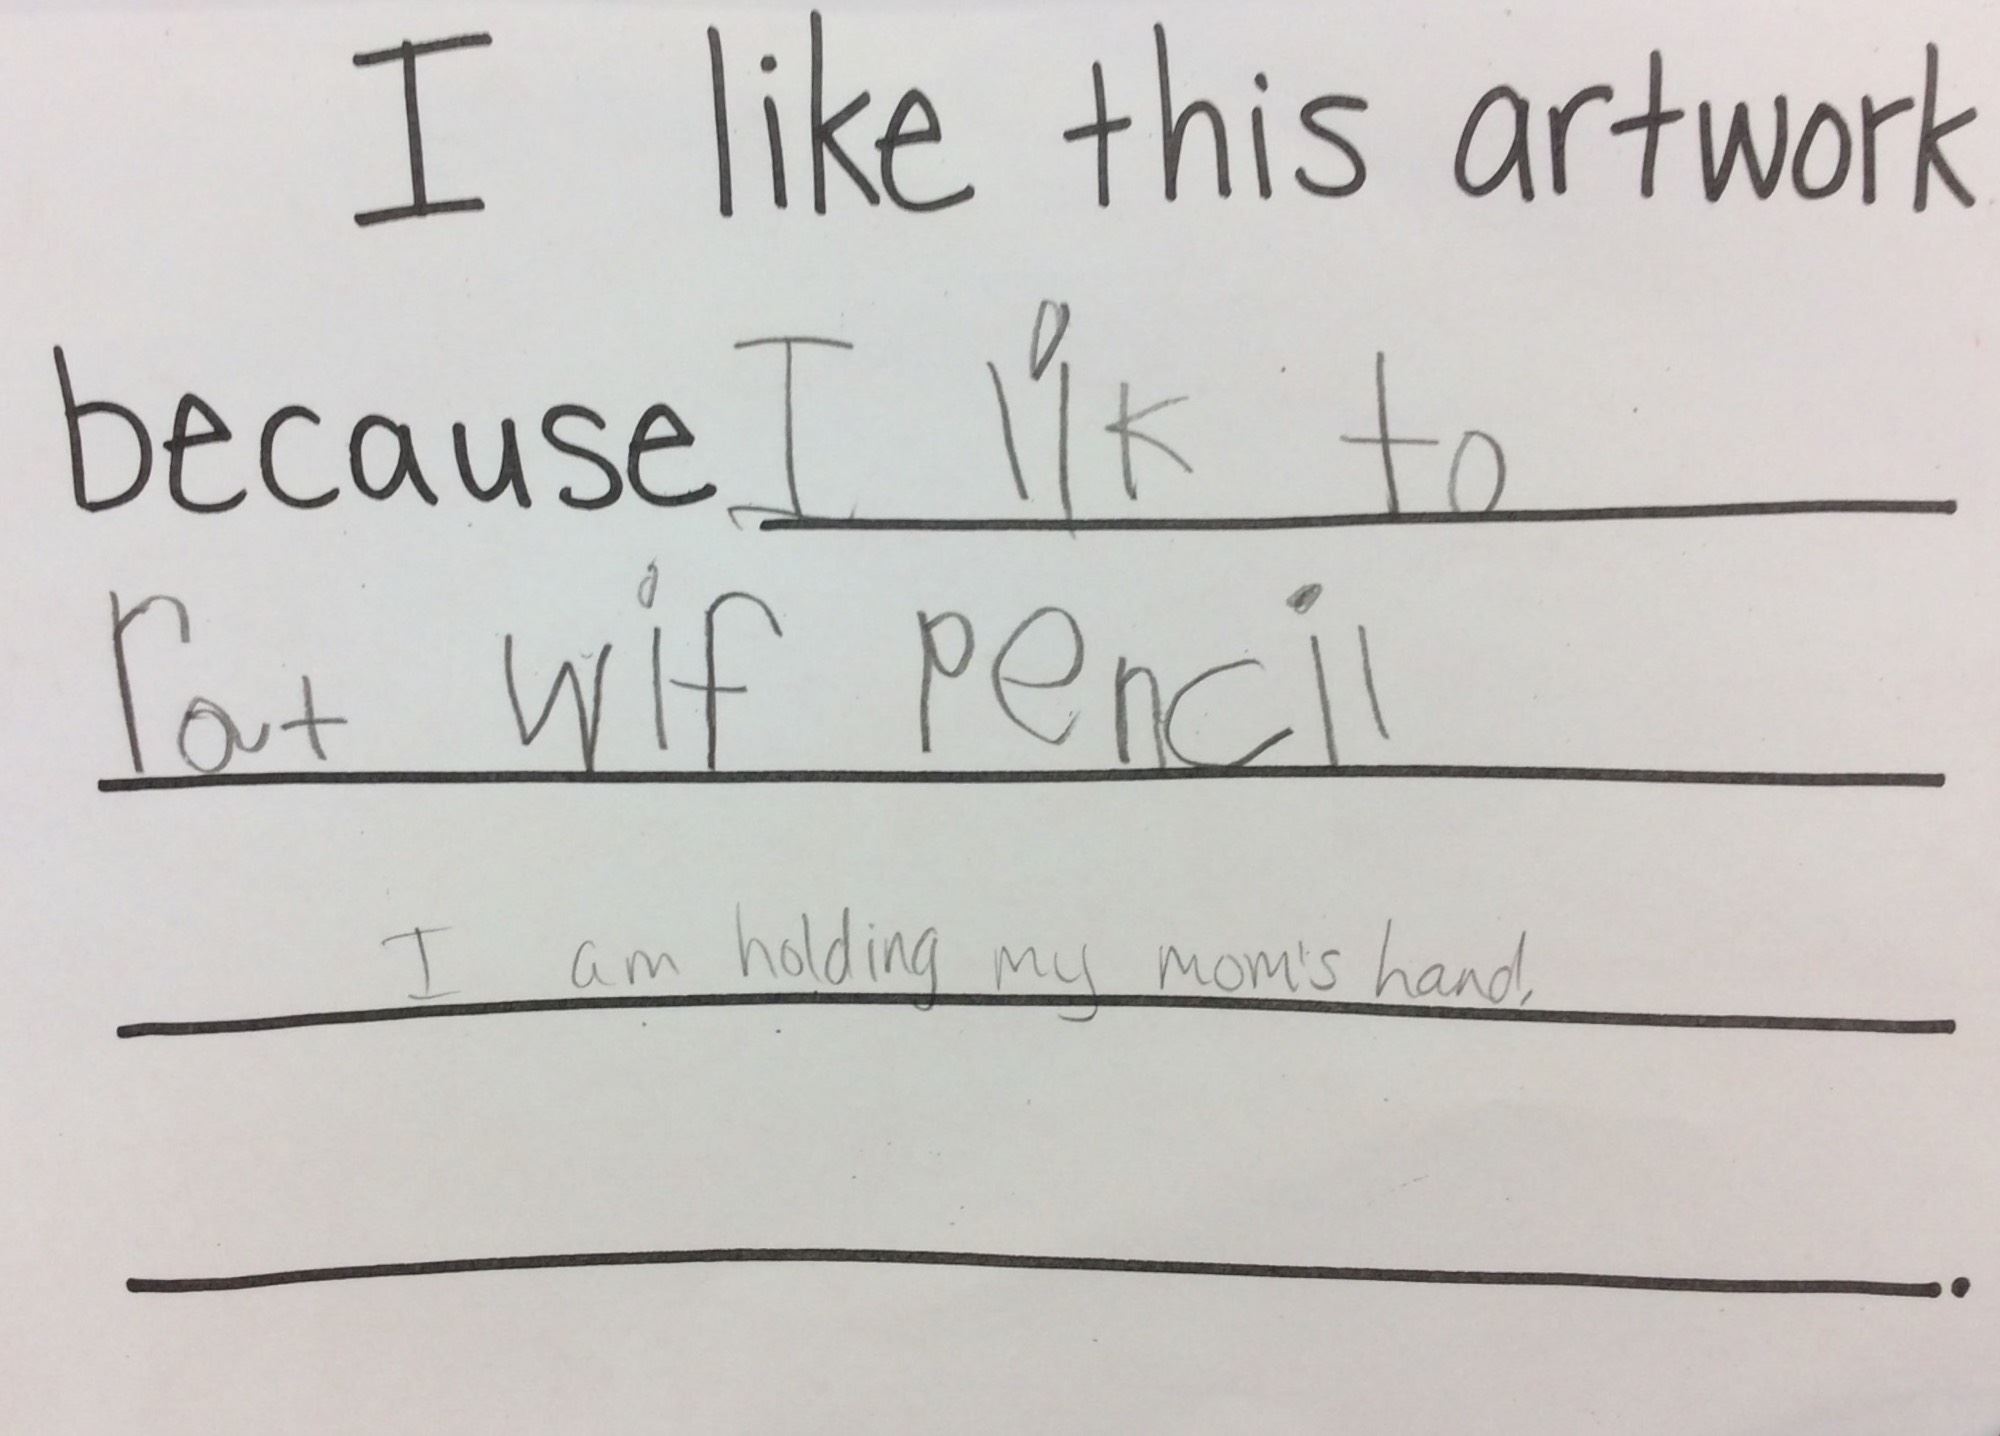 I like this artwork
because I lik to
rat wif pencil
I am holding my mom's hand.
.